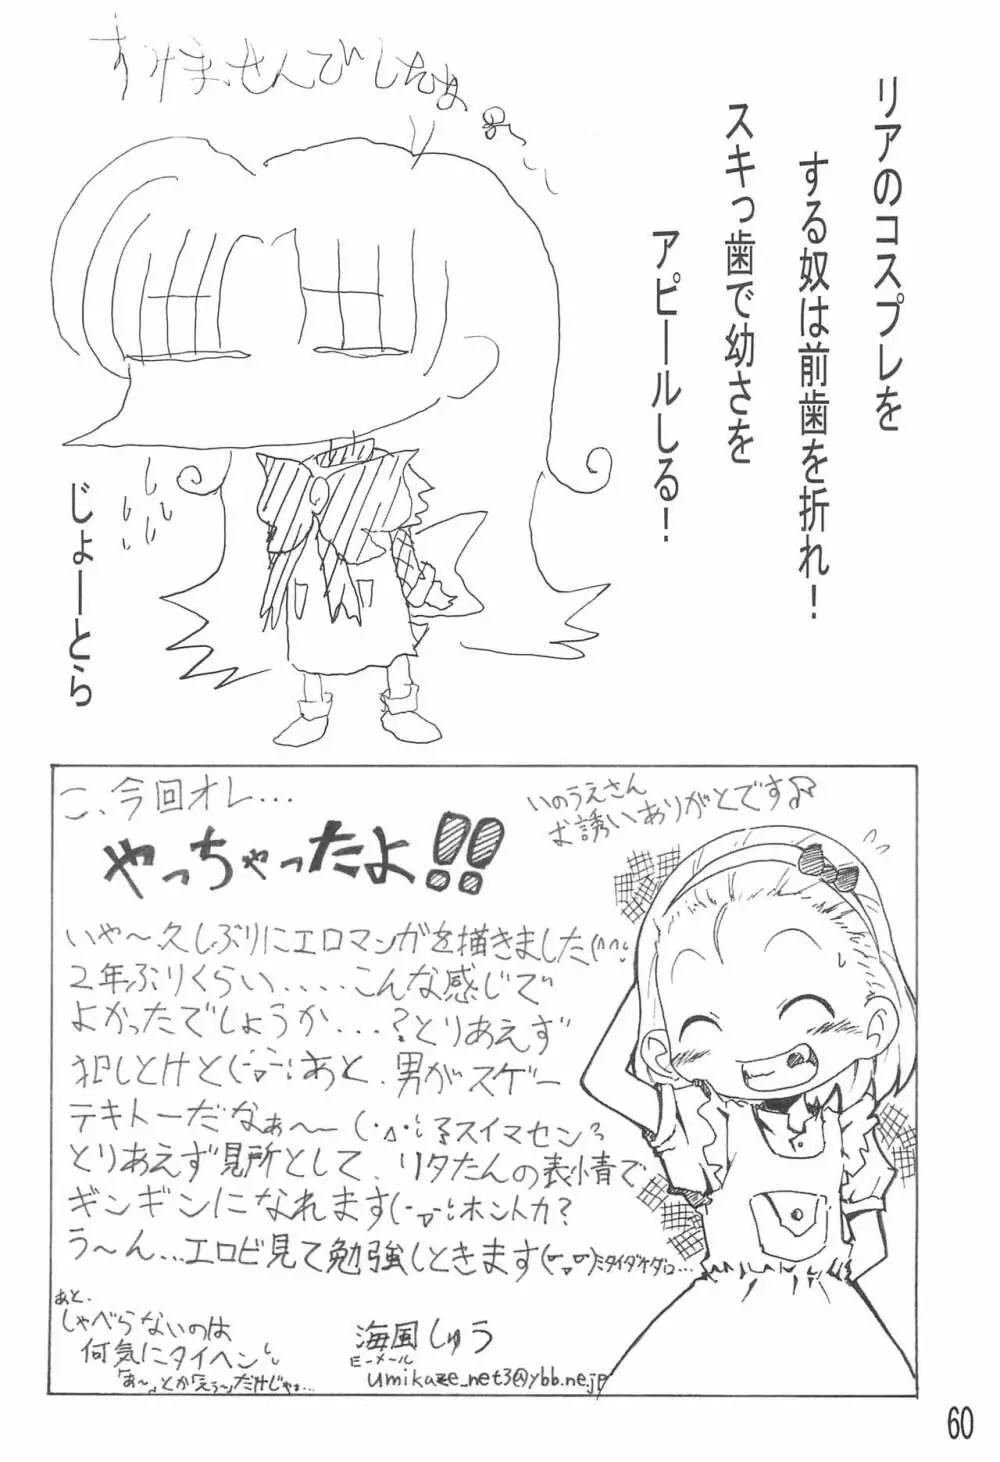 リアのコスプレを
する奴は前歯を折れ！
スキっ歯で幼さを
アピールしる！
すみませんでしたよ
じょーとら
こ、今回オレ…
やっちゃったよ!!
いのうえさん
お誘いありがとです♪
いや〜久しぶりにエロマンガを描きました(^^;
2年ぶりくらい.....こんな感じで
よかったでしょうか...?とりあえず
犯しとけと(-▽-;あと、男がスゲー
テキトーだなぁ〜〜
スイマセン
とりあえず見所として、リタたんの表情で
ギンギンになれます(-▽-;ホントカ?
う〜ん...エロビ見て勉強しときます
ミタイダケダロ...
あと、
しゃべらないのは
何気にタイヘン
「あ〜」とか「えぅ〜」だけじゃぁ...
海風しゅう
E-メール
umikaze_net3@ybb.ne.jp
60